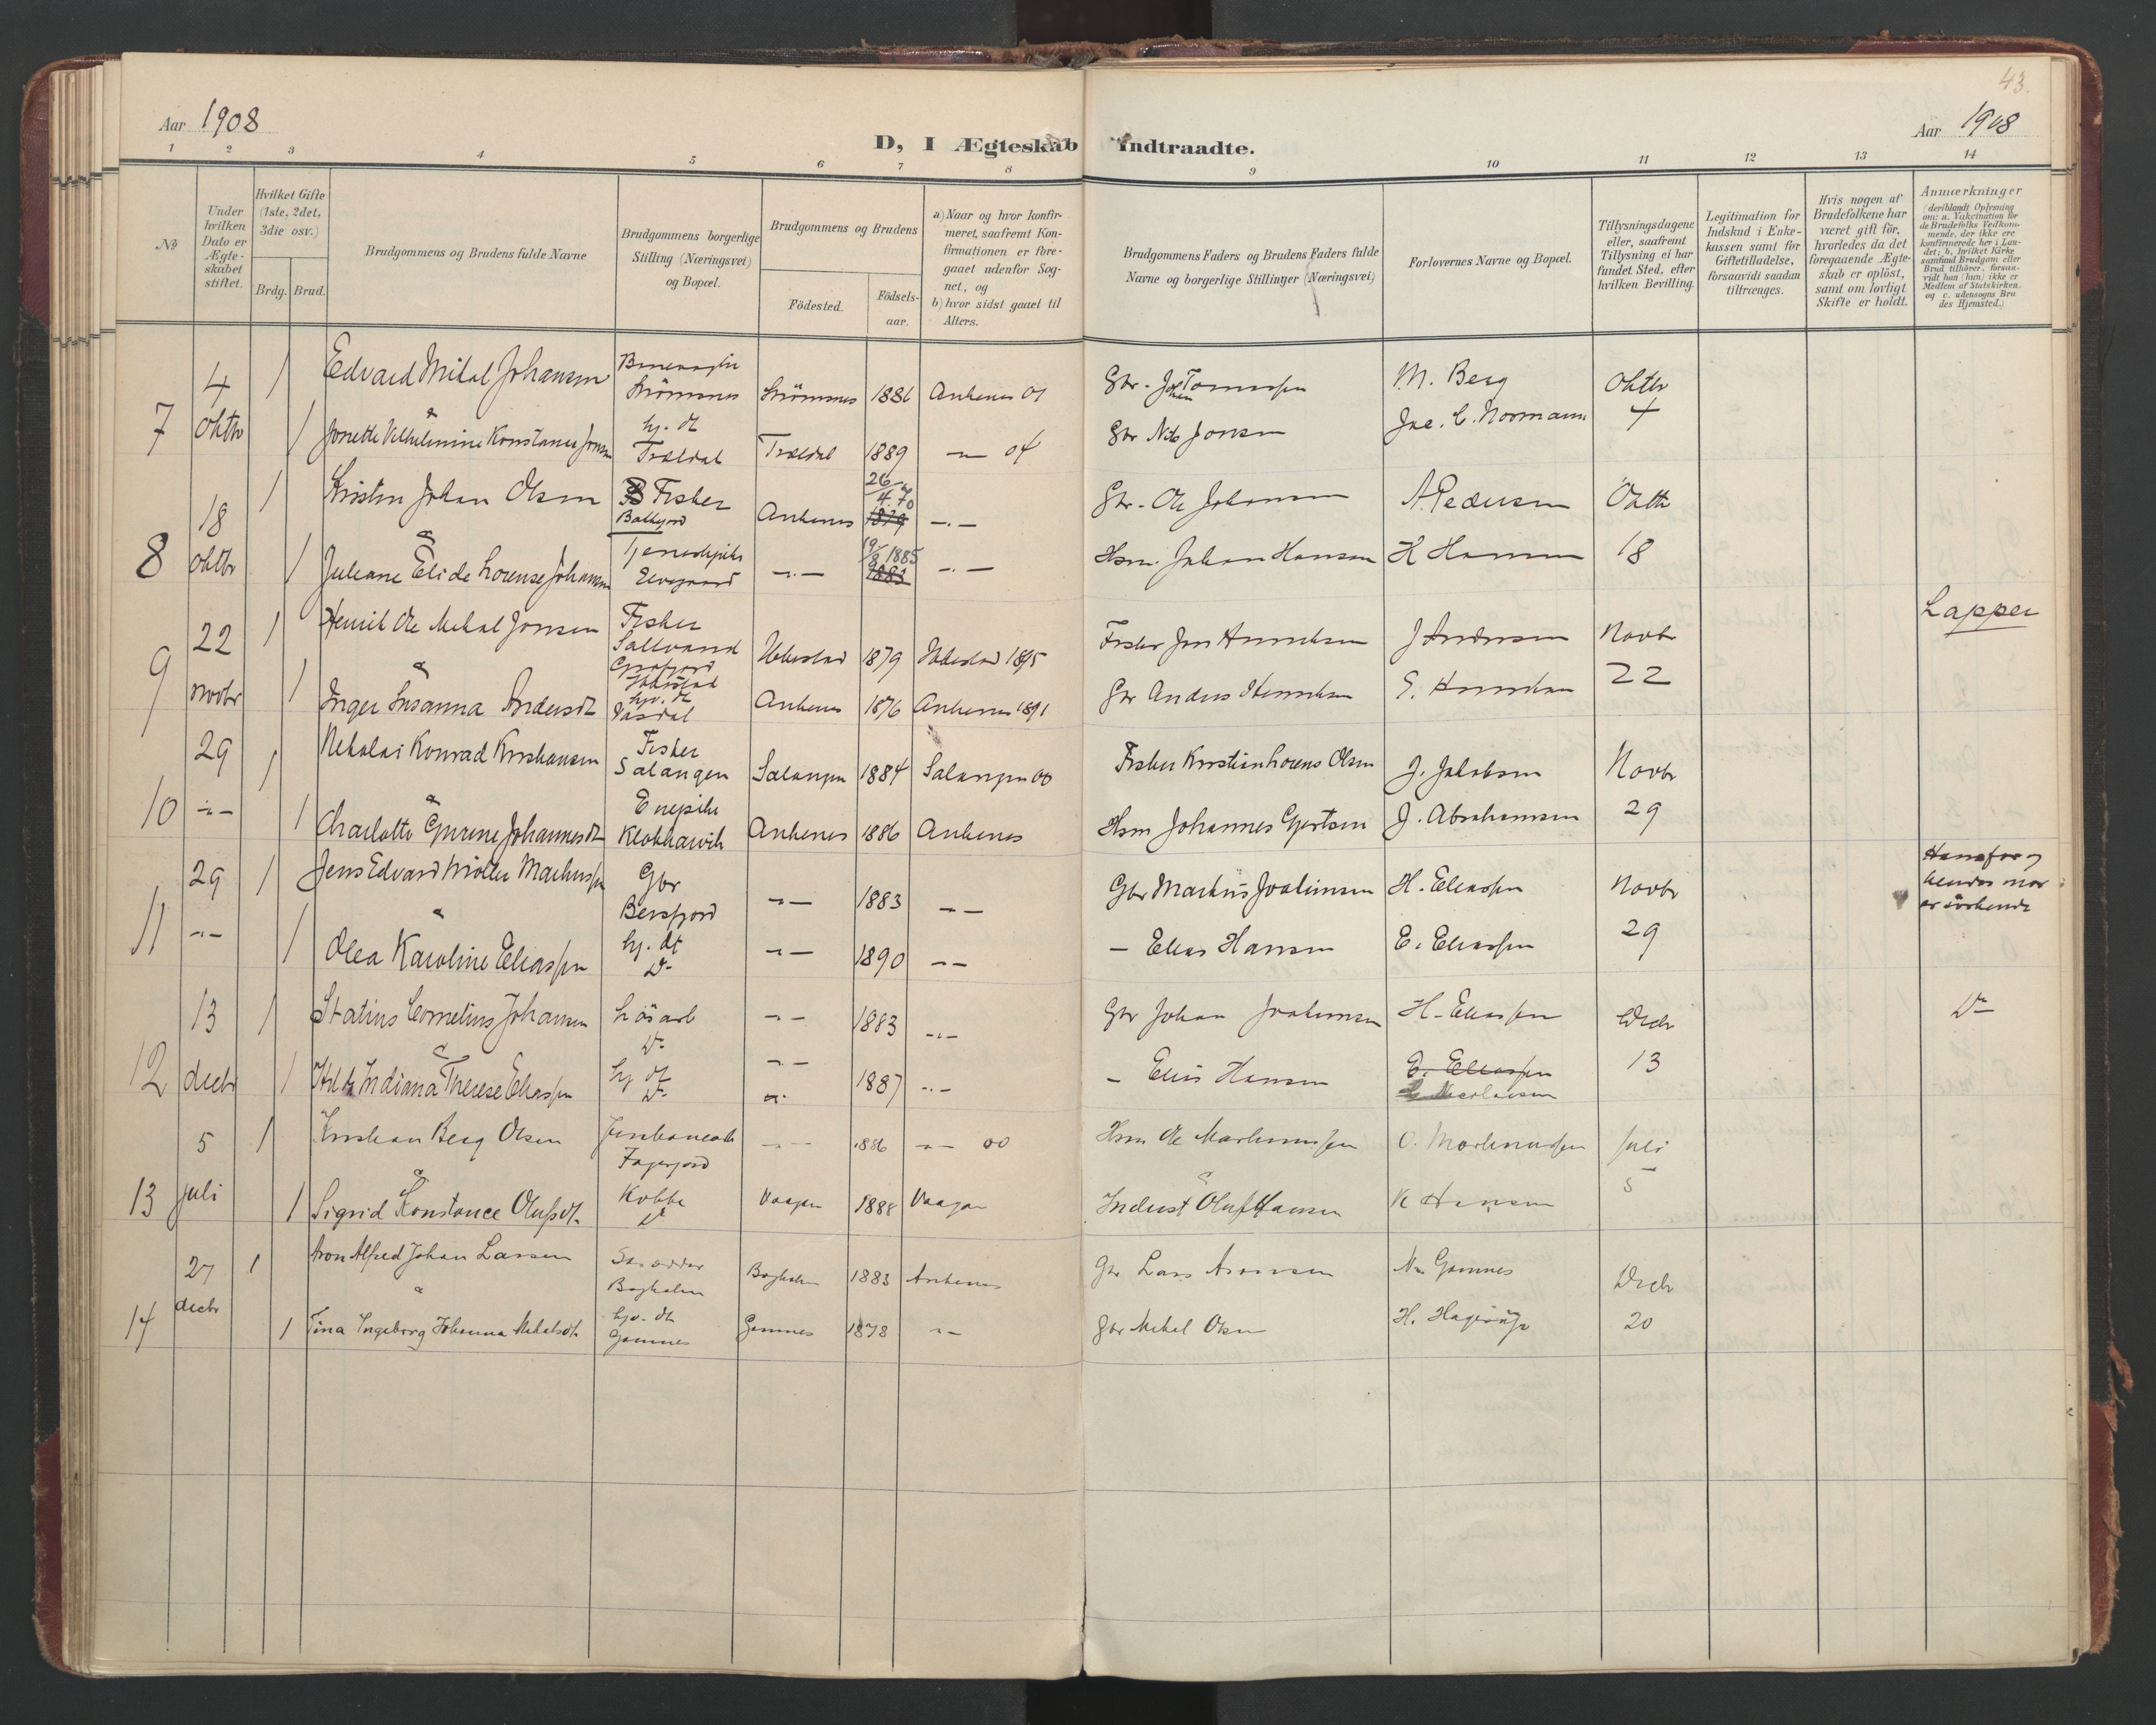 43.
Aar 1908
Aar 1908
D, I Ægteskab Indtraadte.
1 2 3 4 5 6 7 8 9 10 11 12 13 14
№
Under hvilken Dato er Ægteskabet stiftet.
Hvilket Gifte (1ste, 2det, 3die osv.)
Brdg. Brud.
Brudgommens og Brudens fulde Navne
Brudgommens borgerlige Stilling (Næringsvei) og Bopæl.
Brudgommens og Brudens
Födested.
Födselsaar.
a) Naar og hvor konfirmeret, saafremt Konfirmationen er foregaaet udenfor Sognet, og
b) hvor sidst gaaet til Alters.
Brudgommens Faders og Brudens Faders fulde Navne og borgerlige Stillinger (Næringsvei)
Forlovernes Navne og Bopæl.
Tillysningsdagene eller, saafremt Tillysning ei har fundet Sted, efter hvilken Bevilling.
Legitimation for Indskud i Enkekassen samt for Giftetilladelse, forsaavidt saadan tiltrænges.
Hvis nogen af Brudefolkene har været gift för, hvorledes da det foregaaende Ægteskab er oplöst, samt om lovligt Skifte er holdt.
Anmærkninger (deriblandt Oplysning om: a. Vakcination for de Brudefolks Vedkommende, der ikke ere konfirmerede her i Landet; b. hvilket Kirkesamfund Brudgom eller Brud tilhörer, forsaavidt han (hun) ikke er Medlem af Statskirken, og c. udensogns Brudes Hjemsted.)
7 4 oktbr 1 Edvard Mikal Johansen Strömsnes Strömsnes 1881 Ankenes 01 Gbr. Johan Tomassen M. Berg Oktbr
& 1 Jonette Vilhelmine Konstanse Jonsen hj. dt Trældal Trældal 1889 -"- 04 Gbr Nils Jonsen Jac. C. Normann 4
8 18 oktbr 1 Kristen Johan Olsen Fisker Ballfjord Ankenes 26-4.70 1879 -"- Gbr. Ole Johansen A. Pedersen Oktbr
& 1 Juliane Elide Lorense Johansen Tjenestepike Elvegaard -"- 1885 1883 -"- Hsm. Johan Hansen K Hansen 18
9 22 Novbr 1 Henrik Ole Mekal Jonsen Fisker Saltvand Ibbestad Ibbestad 1879 Ibbestad 1895 Fisker Jon Henriksen J Andersen Novbr Lapper
& 1 Inger Susanna Andersdt hjv. dt Vasdal Ankenes 1876 Ankenes 1891 Gbr Anders Henriksen E. Henriksen 22
10 29 -"- 1 Nekolai Konrad Kristiansen Fisker Salangen Salangen 1884 Salangen 00 Fisker Kristian Lorens Olsen J. Jakobsen Novbr
& 1 Charlotte Gurine Johannesdt Enepike Klokkarvik Ankenes 1886 Ankenes Hsm Johannes Gjertsen J. Abrahamsen 29
11 29 -"- 1 Jens Edvard Möller Markussen Gbr Beisfjord -"- 1883 -"- Gbr Markus Joakimsen H. Eliassen Novbr Hans far og hendes mor er söskende
& 1 Olea Karoline Eliassen hj. dt Do -"- 1890 -"- - Elias Hansen E. Eliassen 29
12 13 decbr 1 Statius Cornelius Johansen Lösarb Do -"- 1883 -"- Gbr Johan Joakimsen H. Eliassen Decbr Do
& 1 Indiana Therese Eliassen hj dt Do -"- 1887 -"- - Elias Hansen E. Eliassen Nicolaisen 13
13 5 juli 1 Kristian Berg Olsen Fagerjord -"- 1886 -"- 00 Hsm Ole Martinussen O. Martinussen juli
& 1 Sigrid Konstance Olufsdt. Kokke Do Vaagan 1888 Vaagan Indust Oluf Hansen K Hansen 5
14 27 decbr 1 Aron Alfred Johan Larsen Bogholm Bogholm 1883 Ankenes Gbr Lars Aronsen N. Gamnes Decbr
& 1 Tina Ingeborg Johanna Mekalsdt. hjv. dt Gamnes Gamnes 1878 -"- Gbr Mekal Olsen H. Hagerup 20